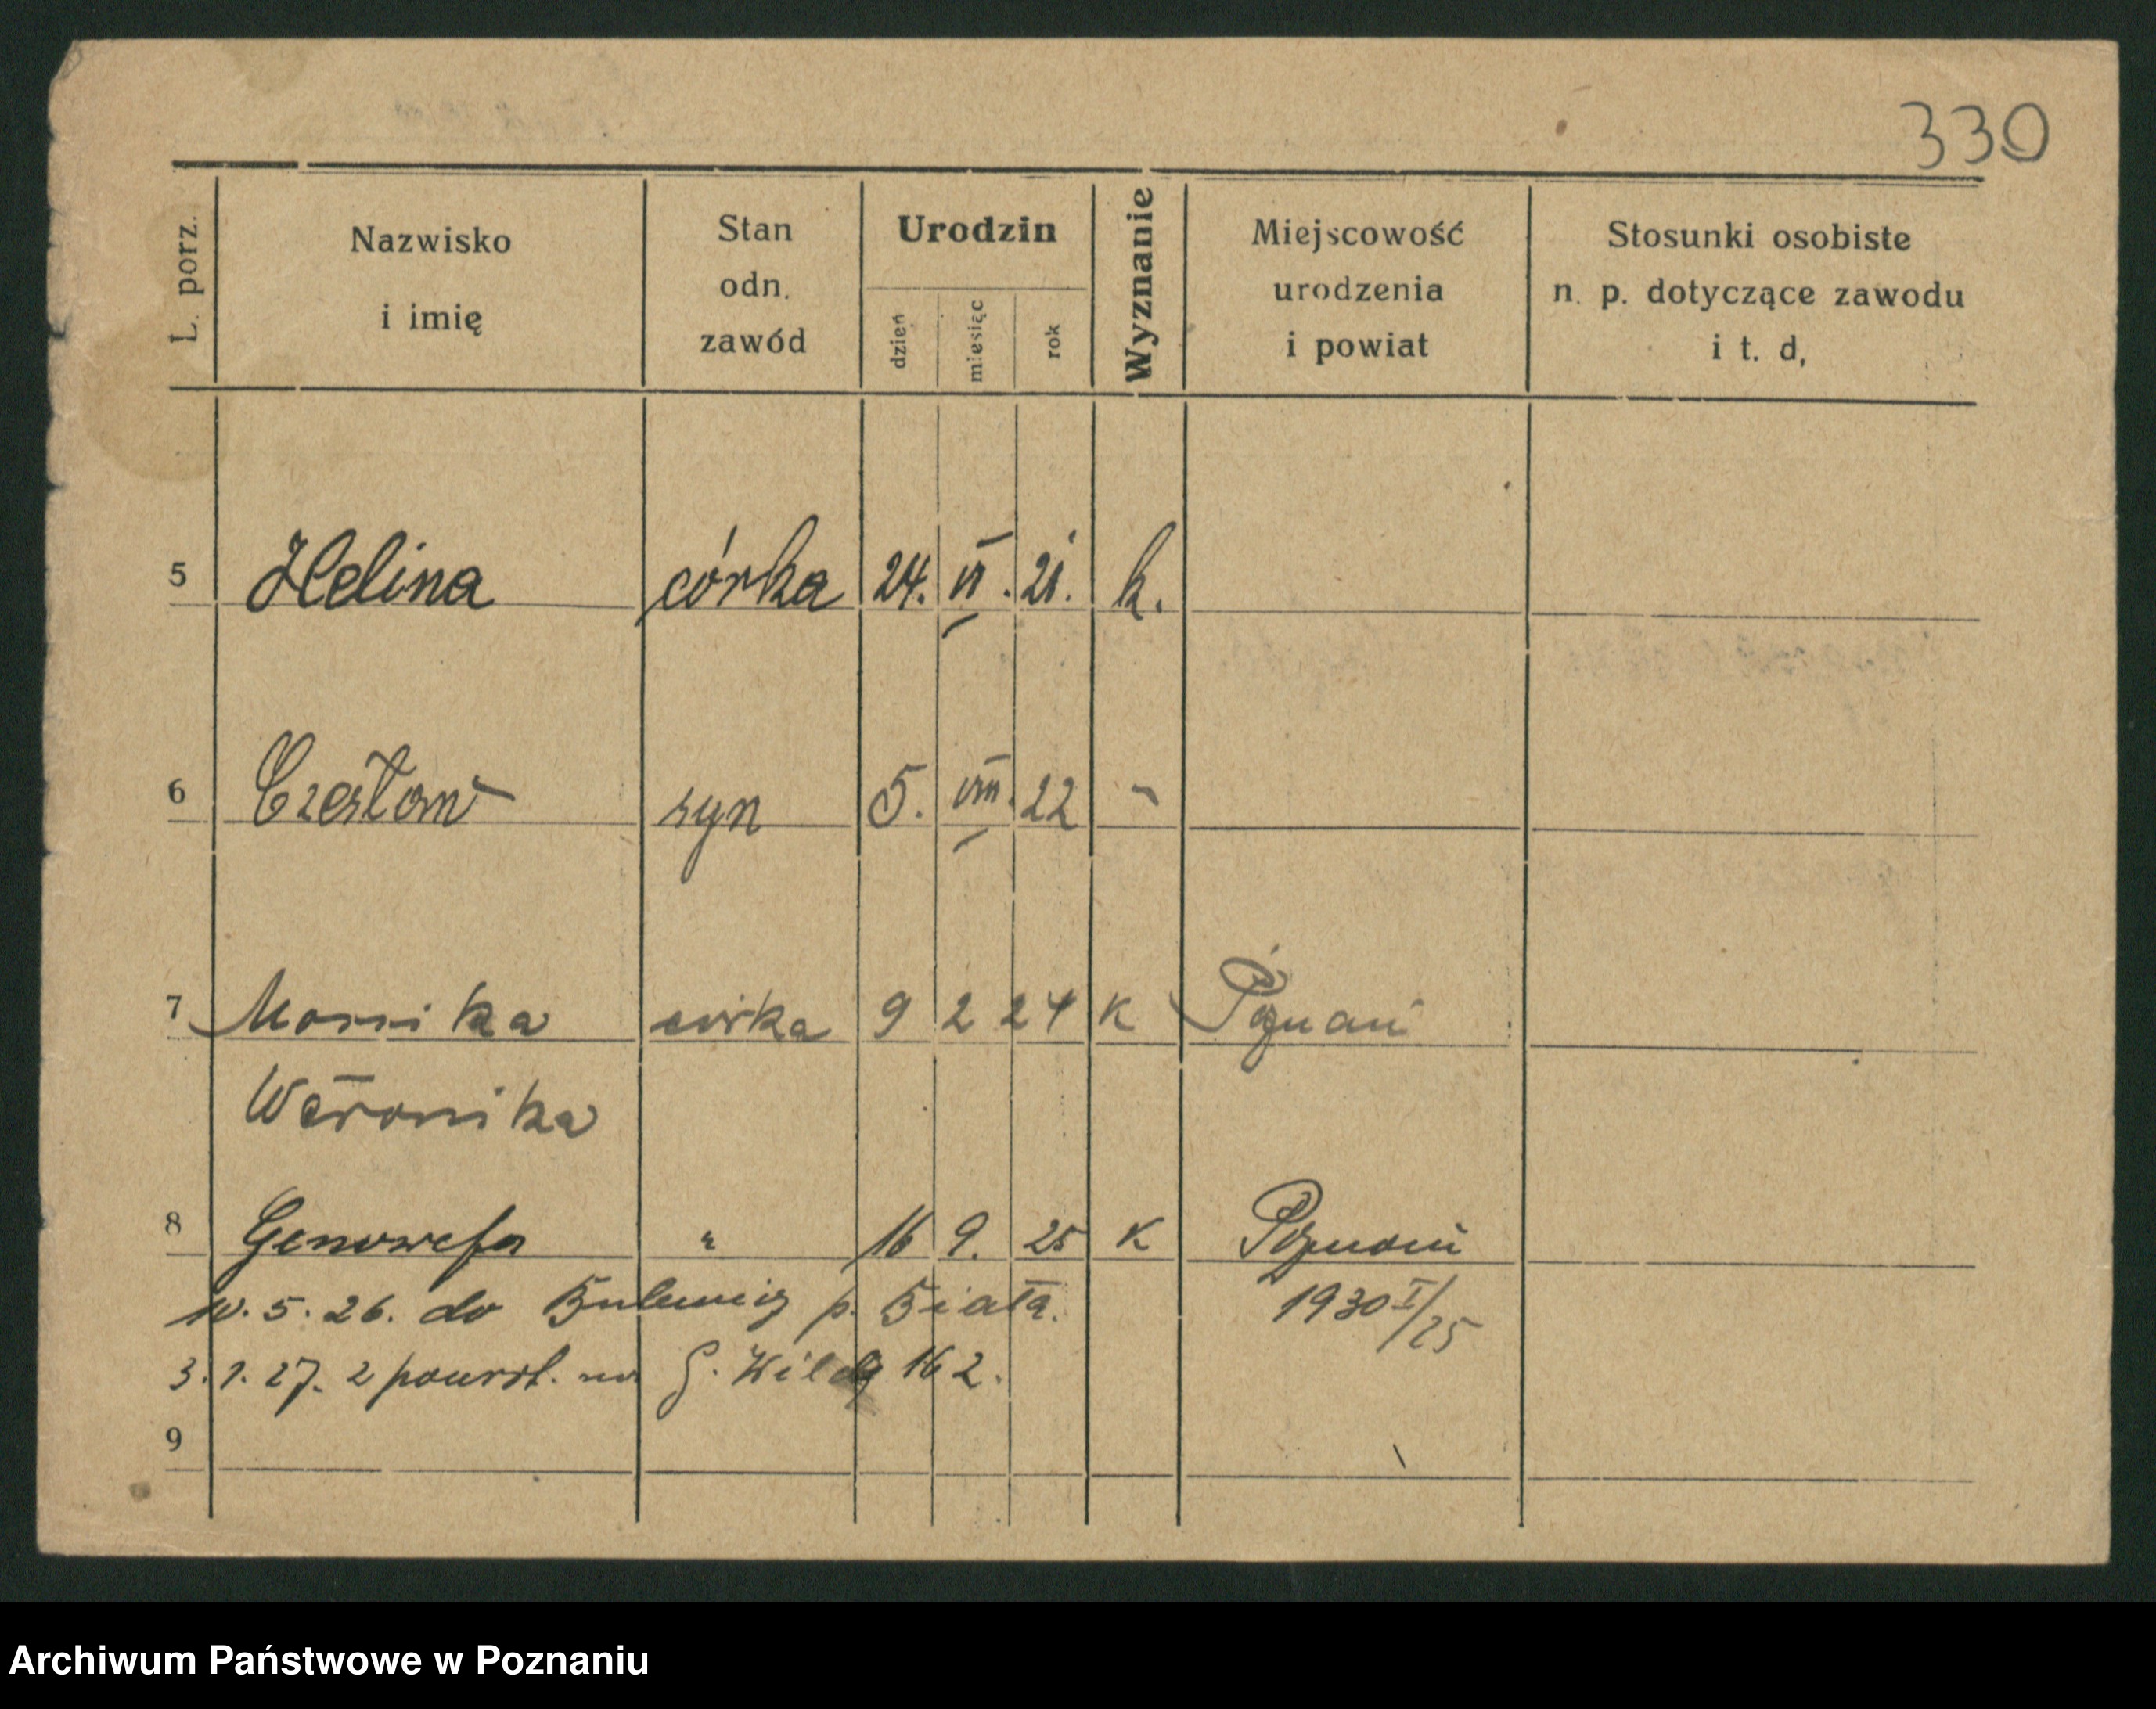 330
L. porz.
Nazwisko
i imię
Stan
odn.
zawód
Urodzin
dzień
miesiąc
rok
Wyznanie
Miejscowość
urodzenia
i powiat
Stosunki osobiste
n. p. dotyczące zawodu
i t. d,
5 Helina córka 24. VI. 21. k.
6 Czesław syn 5. VIII. 22 "
7 Monika córka 9 2 24 K Poznań
Weronika
8 Genowefa " 16 9. 25 K Poznań
10. 5. 26. do p. Biała. 1930 I/25
3. 1. 27. z powrot. na G. Wildą 162.
9
Archiwum Państwowe w Poznaniu